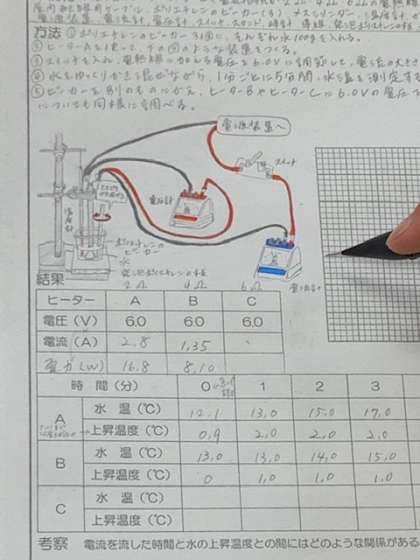 方法 ①ポリエチレンのビーカー3個に、それぞれ水100gを入れる。
②ヒーターAを使って、下の図のような装置をつくる。
③スイッチを入れ、電熱線に加わる電圧を6.0Vに調節して、電流の大きさ
④水をゆっくりかき混ぜながら、1分ごとに5分間、水温を測定する
⑤ビーカーを別のものにかえ、ヒーターBやヒーターCに6.0Vの電圧で
についても同様に調べる。
電源装置へ
スイッチ
電圧計
温度計
ポリエチレンの
ビーカー
水
電流計
結果
2Ω 4Ω 6Ω
ヒーター A B C
電圧(V) 6.0 6.0 6.0
電流(A) 2.8 1.35
電力(W) 16.8 8.10
時間(分) 0 1 2 3
A 水温(℃) 12.1 13.0 15.0 17.0
上昇温度(℃) 0.9 2.0 2.0 2.0
B 水温(℃) 13.0 13.0 14.0 15.0
上昇温度(℃) 0 1.0 1.0 1.0
C 水温(℃)
上昇温度(℃)
考察 電流を流した時間と水の上昇温度との間にはどのような関係がある